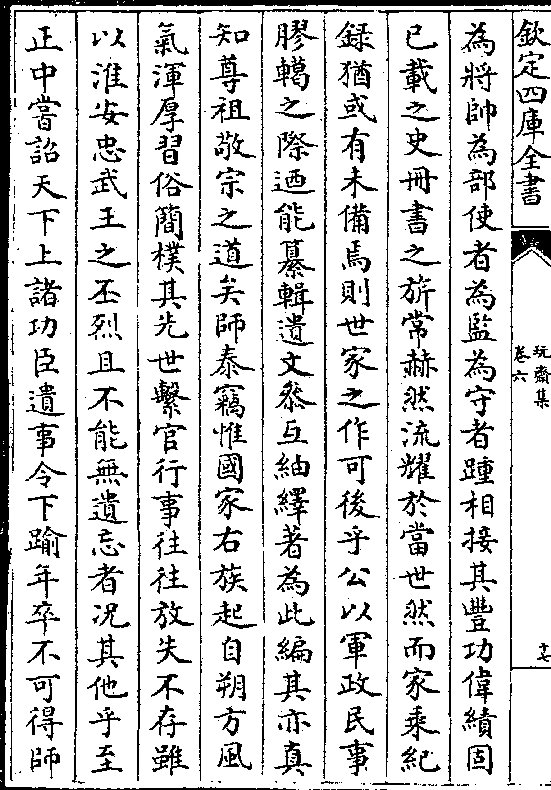 欽定四庫全書
玩齋集
卷六
十七
為將帥為部使者為監為守者踵相接其豐功偉績固
已載之史冊書之旂常赫然流耀於當世然而家乘紀
録猶或有未備焉則世家之作可後乎公以軍政民事
膠轕之際迺能纂輯遺文叅互紬繹著為此編其亦真
知尊祖敬宗之道矣師泰竊惟國家右族起自朔方風
氣渾厚習俗簡樸其先世繫官行事往往放失不存雖
以淮安忠武王之丕烈且不能無遺忘者况其他乎至
正中嘗詔天下上諸功臣遺事令下踰年卒不可得師